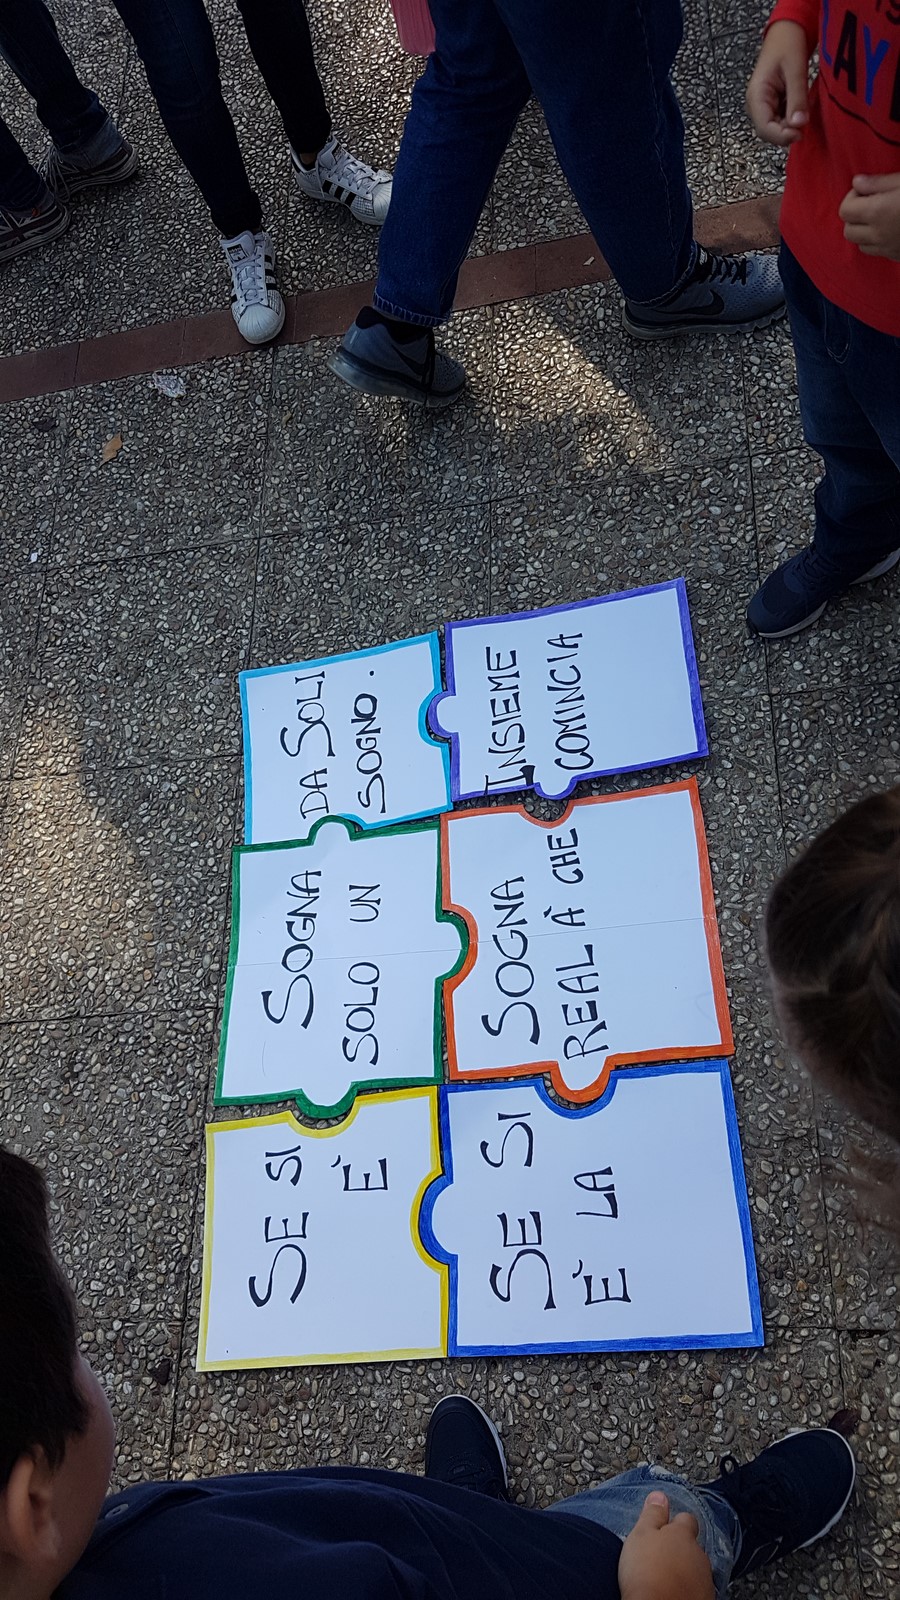 SE SI SOGNA DA SOLI
È SOLO UN SOGNO.
SE SI SOGNA INSIEME
È LA REALÀ CHE COMINCIA